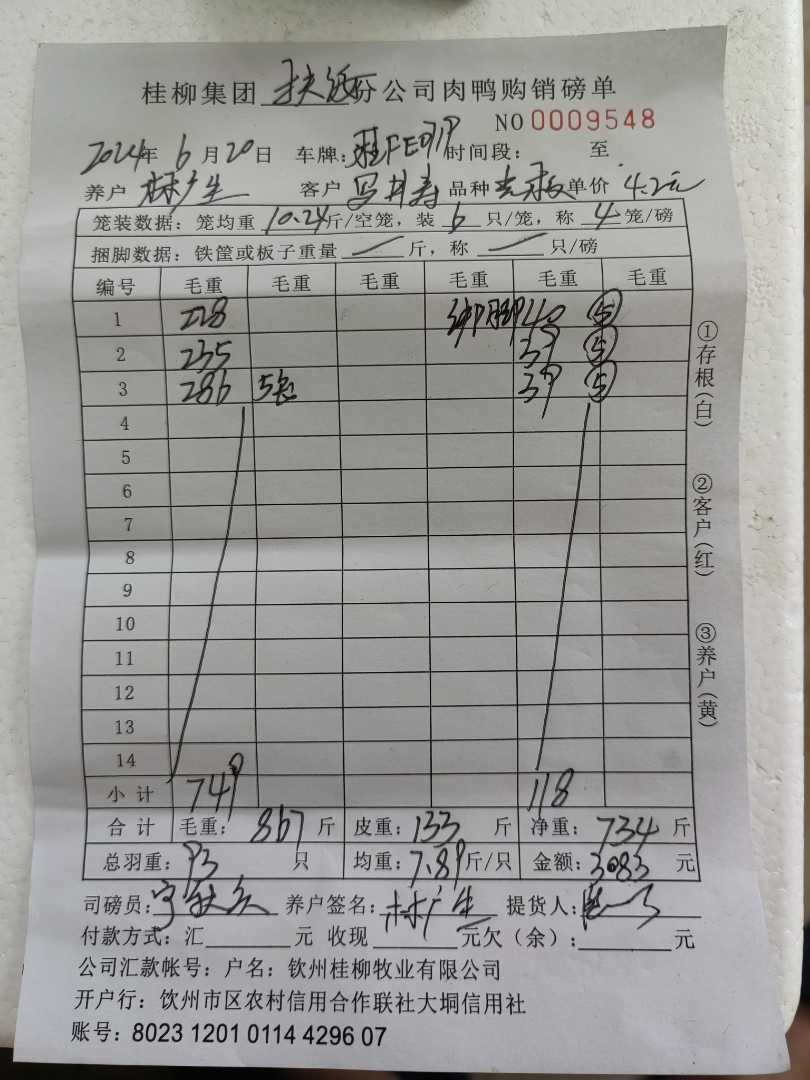 桂柳集团扶绥份公司肉鸭购销磅单
NO 0009548
2024年 6月20日 车牌：桂FE071P 时间段： 至
养户 林广生 客户 马井寿 品种 单价 4.2元
笼装数据：笼均重 10.24斤/空笼，装 6 只/笼，称 4 笼/磅
捆脚数据：铁筐或板子重量 — 斤，称 — 只/磅
编号 毛重 毛重 毛重 毛重 毛重 毛重
1 228 绑脚 40 ⑤
2 235 39 ⑤
3 286 5笼 39 ⑤
4
5
6
7
8
9
10
11
12
13
14
小计 749 118
合计 毛重：867 斤 皮重：133 斤 净重：734 斤
总羽重：93 只 均重：7.89斤/只 金额：3083 元
司磅员： 养户签名：林广生 提货人：
付款方式：汇 元 收现 元欠（余）： 元
公司汇款帐号：户名：钦州桂柳牧业有限公司
开户行：饮州市区农村信用合作联社大垌信用社
账号：8023 1201 0114 4296 07
①存根（白）
②客户（红）
③养户（黄）